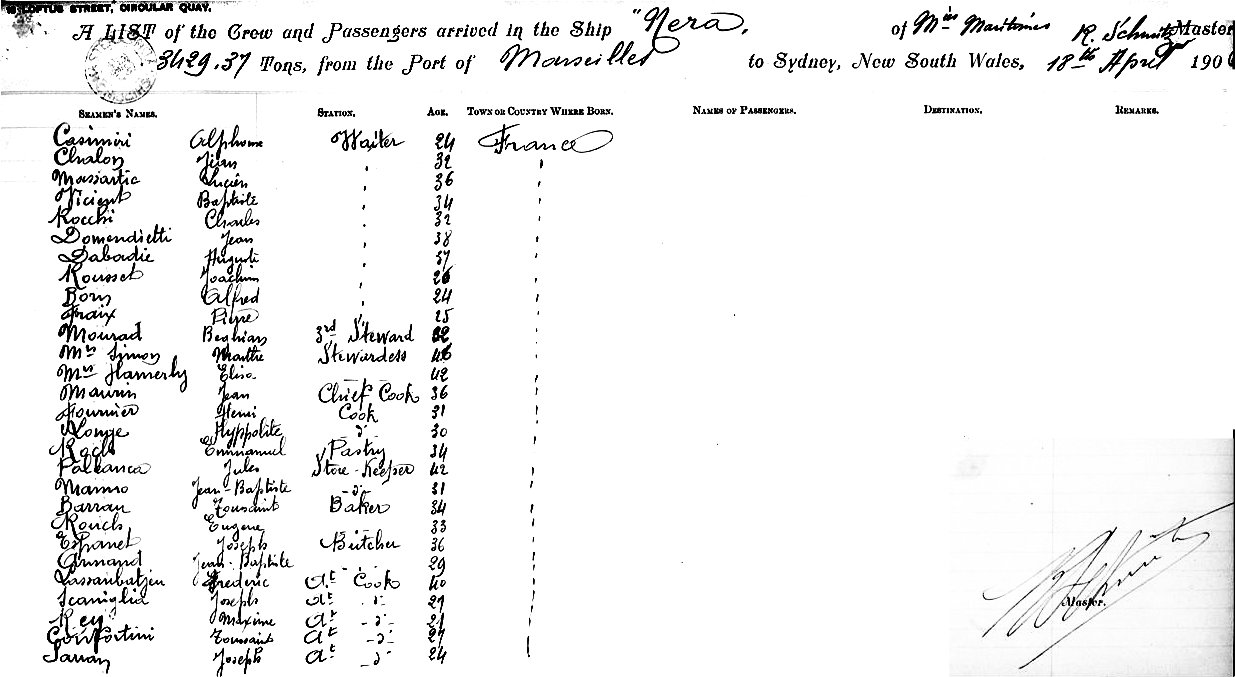 LOFTUS STREET, CIRCULAR QUAY.
A LIST of the Crew and Passengers arrived in the Ship "Nera, of M ies Maritimes R. Schmitz Master
3429.37 Tons, from the Port of Marseilles to Sydney, New South Wales, 18th April 190
SEAMEN'S NAMES. STATION. AGE. TOWN OR COUNTRY WHERE BORN. NAMES OF PASSENGERS. DESTINATION. REMARKS.
Casimiri Alphonse Waiter 24 France
Chalon Jean " 32 "
Massartic Lucien " 36 "
Vicient Baptiste " 34 "
Rocchi Charles " 32 "
Domendietti Jean " 38 "
Dabadie Auguste " 37 "
Rousset Joachim " 26 "
Bory Alfred " 24 "
Fraix Pierre " 25 "
Mourad Beghian 3rd Steward 32 "
Mrs Simon Marthe Stewardess 46 "
Mrs Hamerly Elisa — 42 "
Maurin Jean Chief Cook 36 "
Fournier Henri Cook 31 "
Alonge Hyppolite d° 30 "
Roch Emmanuel Pastry 34 "
Pallanca Jules Store-Keeper 42 "
Manno Jean-Baptiste -d°- 31 "
Barrau Toussaint Baker 34 "
Rouch Eugene 33 "
Espanet Joseph Butcher 36 "
Armand Jean-Baptiste — 29 "
Lassaubatjeu Frederic At Cook 40 "
Scaniglia Joseph At -d°- 27 "
Rey Maxime At -d°- 21 "
Confortini Toussaint At -d°- 27 "
Sarran Joseph At -d°- 24 "
Master.